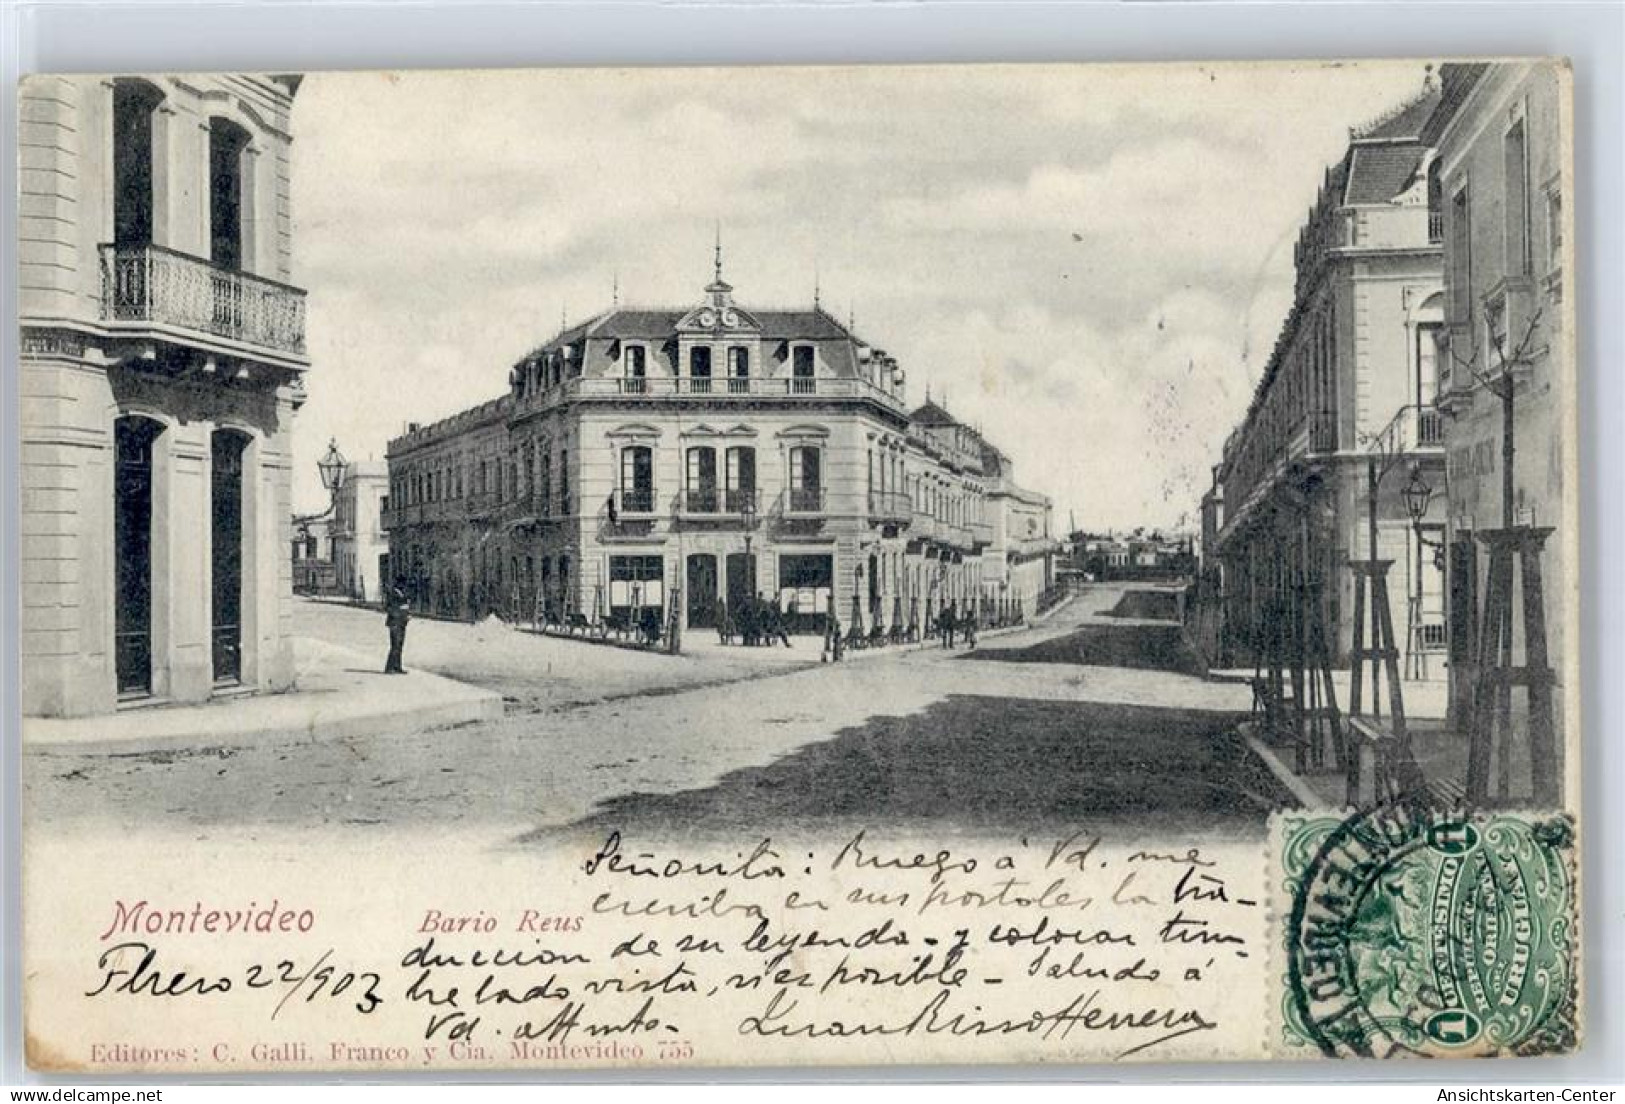 Señorita: Ruego á Vd. me
escriba en sus postales la tra-
duccion de su leyenda- y colocar tim-
bre lado vista, si es posible - Saludo á
Vd. atto
Juan Risso Herrera
Montevideo Bario Reus
Fbrero 22/903
Editores: C. Galli, Franco y Cia. Montevideo 755
MONTEVIDEO
1 CENTESIMO 1
REPUBLICA ORIENTAL
DEL
URUGUAY
delcampe.net
Ansichtskarten-Center